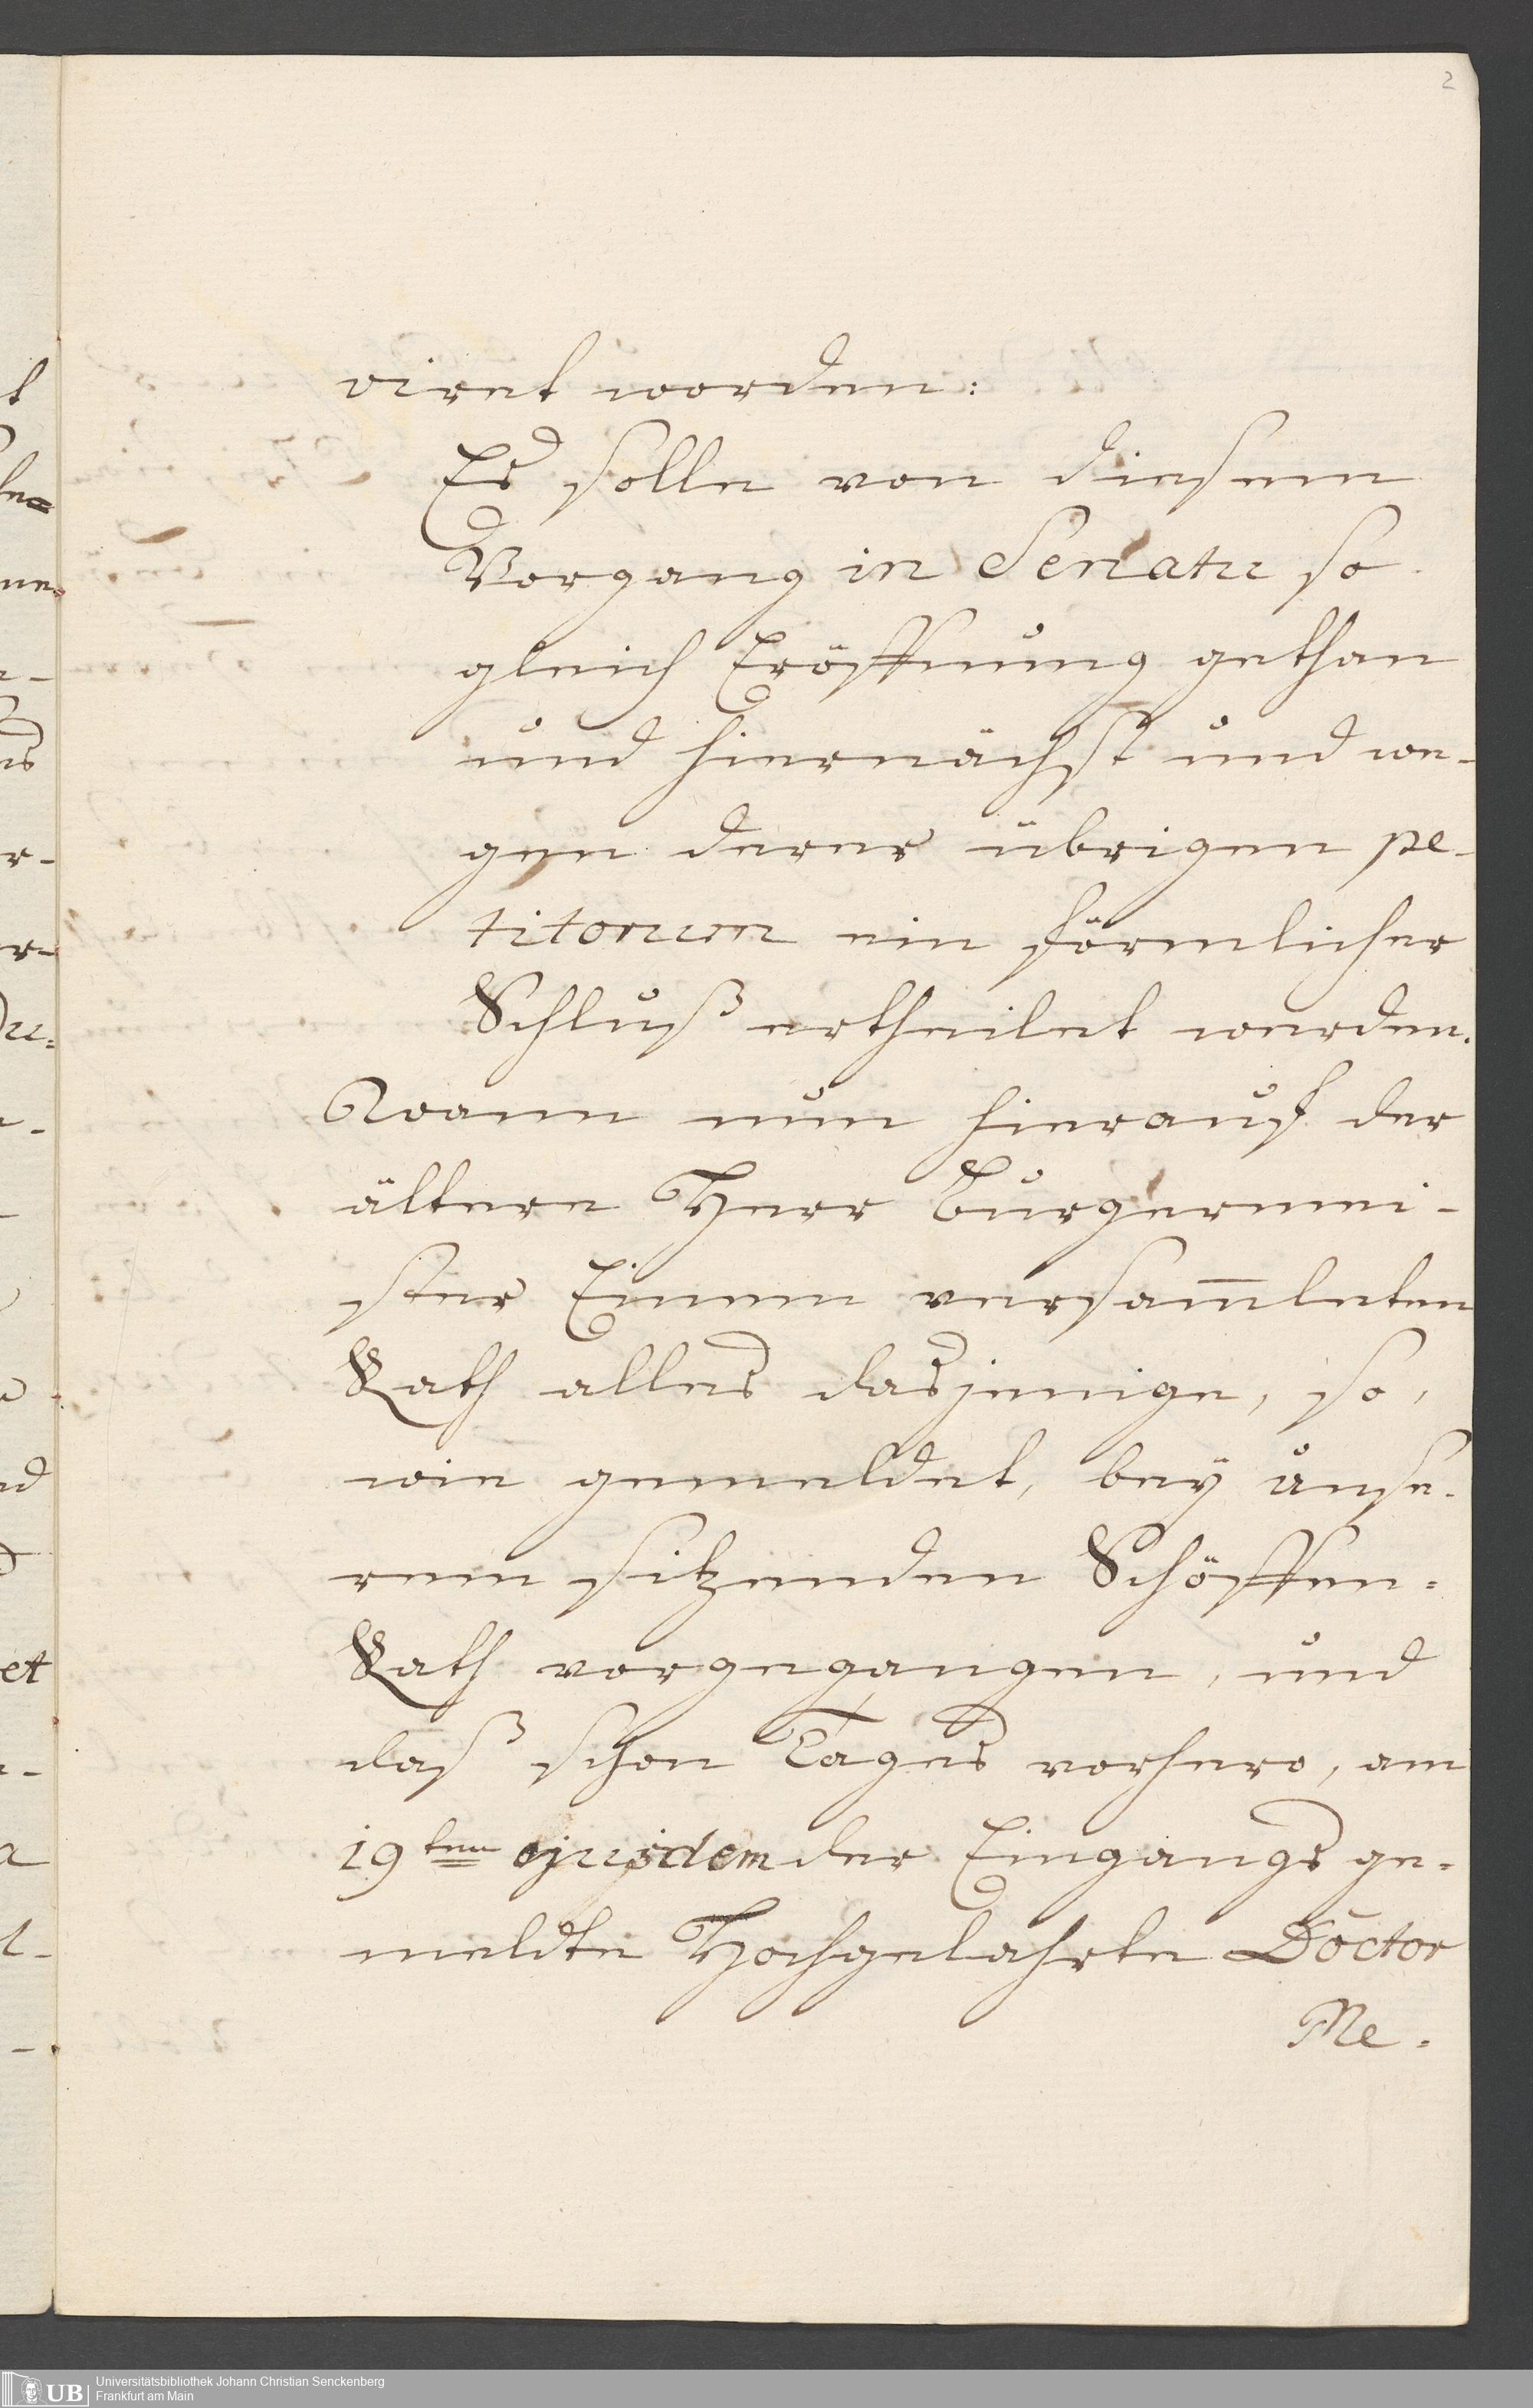 2
viret worden:
Es solle von diesem
Vorgang in Senatu so
gleich Eröffnung gethan
und hiernächst und we-
gen derer übrigen pe-
titorum ein förmlicher
Schluß ertheilet werden.
Wann nun hierauf der
ältere Herr Burgermei-
ster Einem versam̅leten
Rath alles dasjenige, so,
wie gemeldet, bey unse-
rem sitzenden Schöffen-
Rath vorgegangen, und
daß schon Tages vorhero, am
19ten ejusdem der Eingangs ge-
meldte Hochgelahrte Doctor
Me-
UB
Universitätsbibliothek Johann Christian Senckenberg
Frankfurt am Main